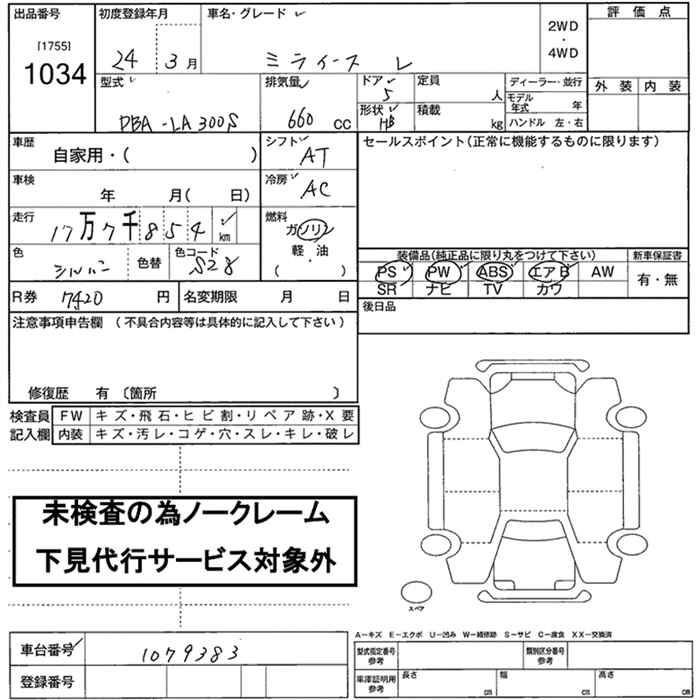 出品番号
[1755]
1034
初度登録年月
24 3月
車名・グレード
ミライース L
2WD
・
4WD
評価点
外装 内装
型式
DBA-LA300S
排気量
660 cc
ドア
5
定員
人
形状
HB
積載
kg
ディーラー・並行
モデル年式 年
ハンドル 左・右
車歴
自家用・( )
シフト
AT
セールスポイント(正常に機能するものに限ります)
車検
年 月( 日)
冷房
AC
走行
17万7千854km
燃料
ガソリン
軽・油
・
( )
色
シルバー
色替
色コード
S28
装備品(純正品に限り丸をつけて下さい)
PS PW ABS エアB AW
SR ナビ TV カワ
新車保証書
有・無
R券 7420円
名変期限 月 日
後日品
注意事項申告欄 (不具合内容等は具体的に記入して下さい)
修復歴 有 〔箇所 〕
検査員記入欄
FW キズ・飛石・ヒビ割・リペア跡・X要
内装 キズ・汚レ・コゲ・穴・スレ・キレ・破レ
未検査の為ノークレーム
下見代行サービス対象外
スペア
A-キズ E-エクボ U-凹み W-補修跡 S-サビ C-腐食 XX-交換済
車台番号 1079383
登録番号
型式指定番号 参考
類別区分番号 参考
車庫証明用 参考
長さ cm
幅 cm
高さ cm